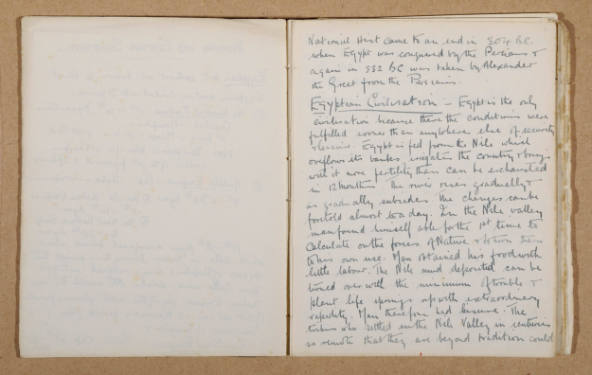 National Hist came to an end in 504 B.C.
when Egypt was conquered by the Persians &
again in 332 BC was taken by Alexander
the Great from the Persians.
Egyptian Civilisation – Egypt is the only
civilisation because there the conditions were
fulfilled sooner than anywhere else of security
& leisure. Egypt is fed from the Nile which
overflows its banks irrigates the country & brings
with it more fertility than can be exhausted
in 12 months. The river rises gradually &
as gradually subsides. The changes can be
foretold almost to a day. In the Nile valley
man found himself able for the 1st time to
calculate on the forces of Nature & to turn them
to his own use. Man obtained his food with
little labour. The Nile mud deposited can be
turned over with the minimum of trouble &
plant life springs up with extraordinary
rapidity. Man therefore had leisure. The
who settled in the Nile Valley in centuries
so remote that they are beyond tradition could